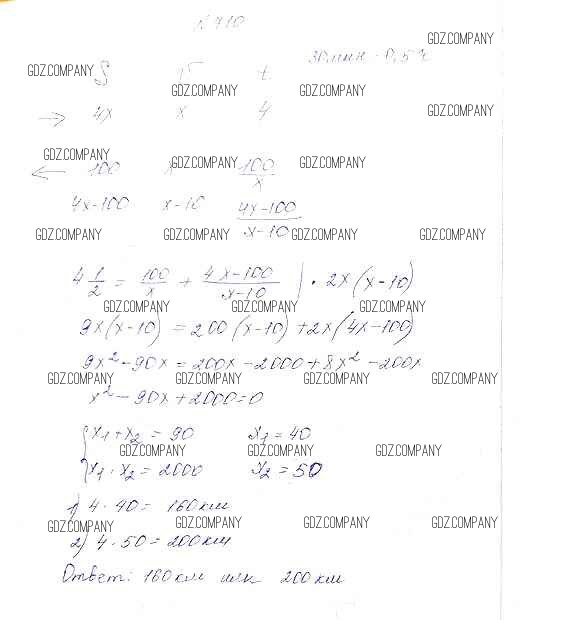 № 710
GDZ.COMPANY
30 мин - 0,5 ч
GDZ.COMPANY S v t
GDZ.COMPANY GDZ.COMPANY
→ 4x x 4 GDZ.COMPANY
GDZ.COMPANY
← 100 x 100/x
GDZ.COMPANY GDZ.COMPANY
4x-100 x-10 (4x-100)/(x-10)
GDZ.COMPANY GDZ.COMPANY GDZ.COMPANY GDZ.COMPANY
4 1/2 = 100/x + (4x-100)/(x-10) | · 2x(x-10)
GDZ.COMPANY GDZ.COMPANY GDZ.COMPANY
9x(x-10) = 200(x-10) + 2x(4x-100)
9x² - 90x = 200x - 2000 + 8x² - 200x
GDZ.COMPANY GDZ.COMPANY GDZ.COMPANY GDZ.COMPANY
x² - 90x + 2000 = 0
{ x₁ + x₂ = 90 x₁ = 40
GDZ.COMPANY GDZ.COMPANY GDZ.COMPANY
x₁ · x₂ = 2000 x₂ = 50
1) 4 · 40 = 160 км
GDZ.COMPANY GDZ.COMPANY GDZ.COMPANY GDZ.COMPANY
2) 4 · 50 = 200 км
Ответ: 160 км или 200 км